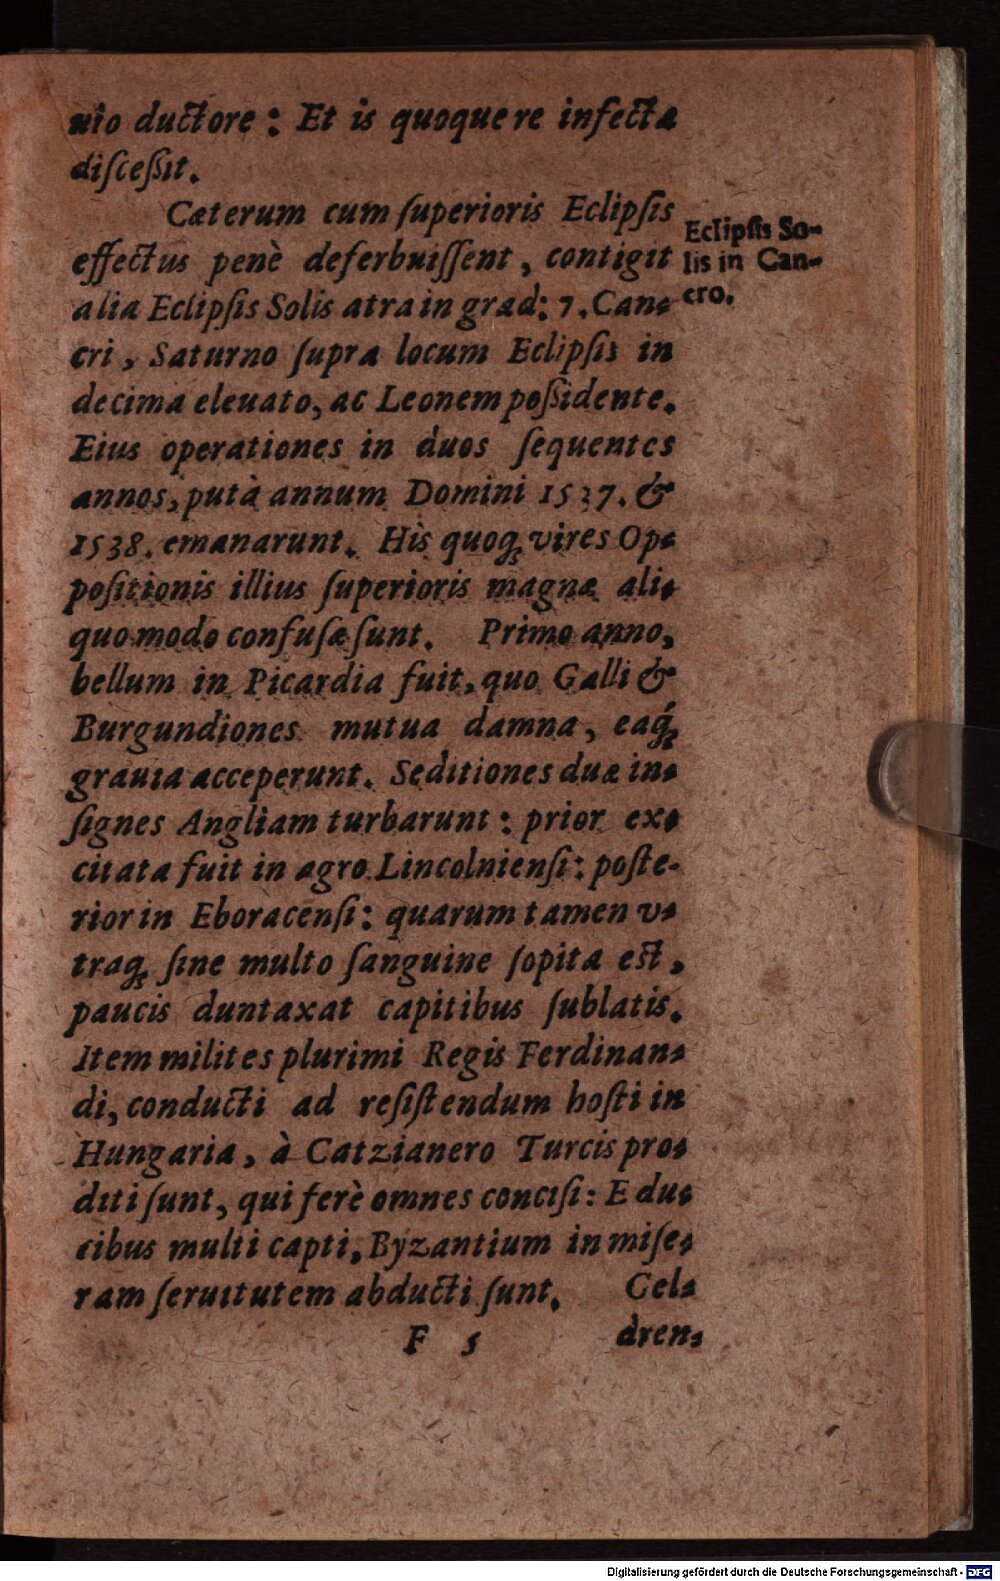 uio ductore: Et is quoque re infecta
discessit.
Cæterum cum superioris Eclipsis
effectus penè deferbuissent, contigit
alia Eclipsis Solis atra in grad: 7. Can-
cri, Saturno supra locum Eclipsis in
decima eleuato, ac Leonem possidente.
Eius operationes in duos sequentes
annos, putà annum Domini 1537. &
1538. emanarunt. His quoq; vires Op-
positionis illius superioris magnæ ali-
quo modo confusæ sunt. Primo anno,
bellum in Picardia fuit, quo Galli &
Burgundiones mutua damna, eaq́;
grauia acceperunt. Seditiones duæ in-
signes Angliam turbarunt: prior ex-
citata fuit in agro Lincolniensi: poste-
rior in Eboracensi: quarum tamen v-
traq; sine multo sanguine sopita est,
paucis duntaxat capitibus sublatis.
Item milites plurimi Regis Ferdinan-
di, conducti ad resistendum hosti in
Hungaria, à Catzianero Turcis pro-
diti sunt, qui ferè omnes concisi: E du-
cibus multi capti, Byzantium in mise-
ram seruitutem abducti sunt. Gel-
F 5 dren-
Eclipsis So-
lis in Can-
cro.
Digitalisierung gefördert durch die Deutsche Forschungsgemeinschaft - DFG